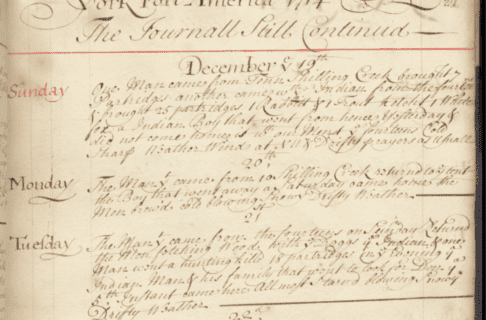 York Fort America 1714
The Journall Still Continued
December ye 19th
Sunday
One Man came from Tenn Shilling Creek brought 7
Partridges another came wth Indian from the fourteens
& brought 25 partridges 1 Rabbit & 1 Trout
a Indian Boy that went from hence Yesterday &
did not come home is wth our Men at ye fourteens Cold
Sharp Weather Winds at NW & Drifty prayers as usuall
20th
Monday
The Man yt came from 10 Shilling Creek returnd to tent
the Boy that went away a Saturday came home the
Men cold blowing Snowy Drifty Weather
21
Tuesday
The Man yt came from the fourteens on Sunday Returnd
the Men fetching Wood with ye Doggs ye Indian & one
Man went a hunting kild 18 partridges in ye Evening ye
Indian Man & his family that went to look for Deer ye
Instant came here Allmost Starvd blowing Snowy
Drifty Weather
22d